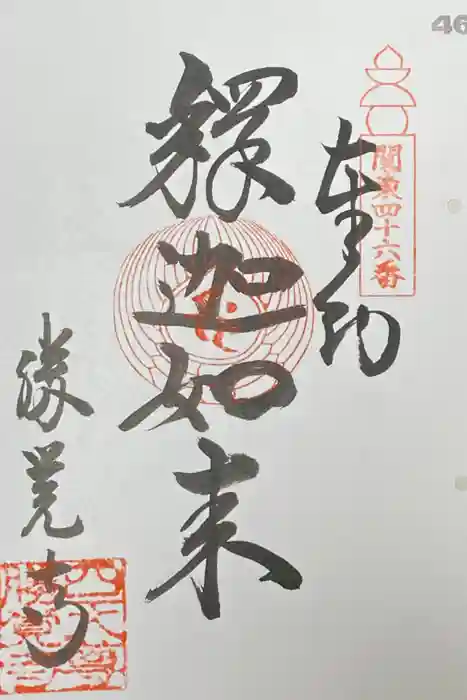 46
関東四十六番
奉印
釋迦如来
勝覚寺